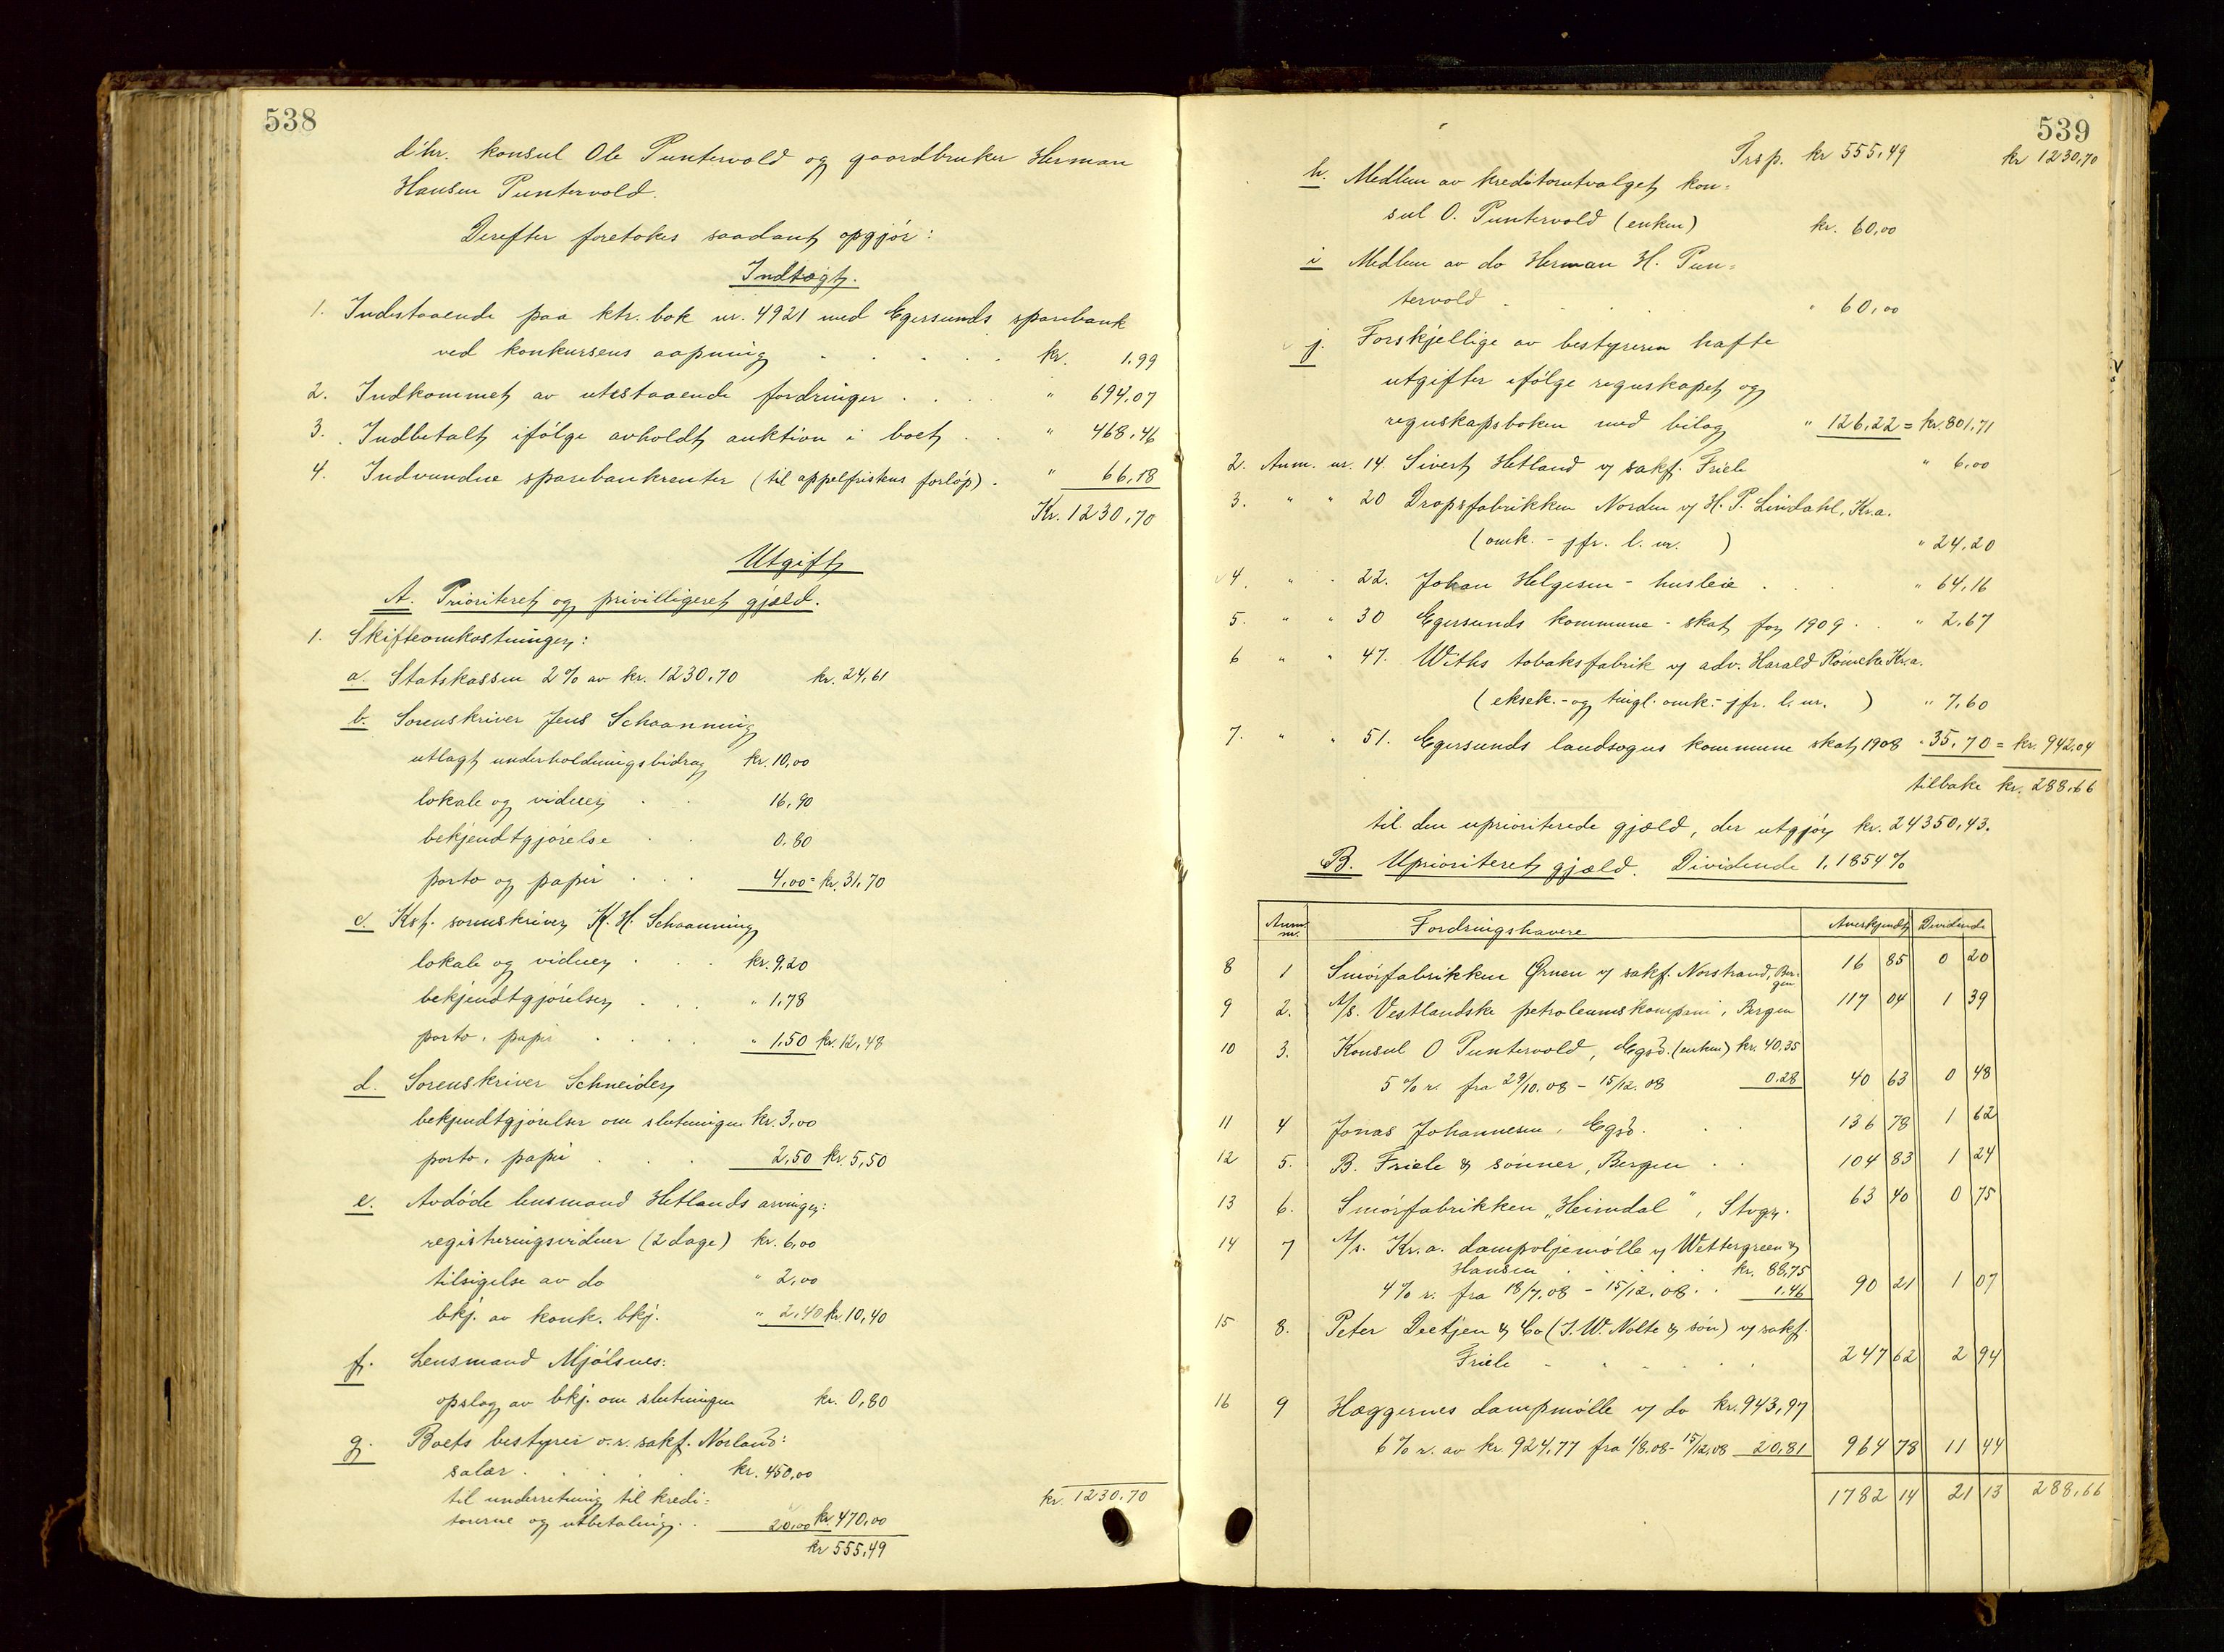 538
d'hr. konsul Ole Puntervold og gaardbruker Herman
Hansen Puntervold.
Derefter foretokes saadant opgjör:
Indtægt.
1. Indestaaende paa ktr. bok nr. 4921 med Egersunds sparebank
ved konkursens aapning . . . . . kr. 1,99
2. Indkommet av utestaaende fordringer . . . " 694,07
3. Indbetalt ifölge avholdt auktion i boet . . " 468,46
4. Indvundne sparebankrenter (til appelfristens forløp) . " 66,18
Kr. 1230,70
Utgift
A. Prioriteret og privilligeret gjæld.
1. Skifteomkostninger:
a. Statskassen 2% av kr. 1230,70 kr. 24,61
b. Sorenskriver Jens Schaanning
utlagt underholdningsbidrag kr. 10,00
lokale og vidner . . 16,90
bekjendtgjörelse . . 0,80
porto og papir . . . 4,00 = kr. 31,70
c. Kst. sorenskriver K. H. Schaanning
lokale og vidner . . . kr. 9,20
bekjendtgjörelser . . . " 1,78
porto, papir . . . . " 1,50 kr. 12,48
d. Sorenskriver Schneider
bekjendtgjörelser om slutningen kr. 3,00
porto, papir . . . 2,50 kr. 5,50
e. Avdöde lensmand Hetlands arvinger:
registreringsvidner (2 dage) kr. 6,00
tilsigelse av do " 2,00
bkj. av konk. bkj. " 2,40 kr. 10,40
f. Lensmand Mjölsnes:
opslag av bkj. om slutningen kr. 0,80
g. Boets bestyrer o.r. sakf. Norland:
salær . . . . . kr. 450,00
til underretning til kredi-
torerne og utbetaling . . 20,00 kr. 470,00
kr 555,49
kr. 1230,70
539
Trsp. kr 555,49 kr 1230,70
h. Medlem av kreditorutvalget kon-
sul O. Puntervold (enken) kr. 60,00
i Medlem av do Herman H. Pun-
tervold . . . . " 60,00
j. Forskjellige av bestyreren hafte
utgifter ifölge regnskapet og
regnskapsboken med bilag " 126,22 = kr. 801,71
2. Anm. nr. 14. Sivert Hetland v/ sakf. Friele " 6,00
3. " " 20 Dropsfabrikken Norden v/ H. P. Lindahl, Kr.a.
(omk. - jfr. l. nr. ) " 24,20
4. " " 22. Johan Helgesen - husleie . . " 64,16
5. " " 30 Egersunds kommune - skat for 1909 . . " 2,67
6 " " 47. Withs tobaksfabrik v/ adv. Harald Römcke Kr.a.
(eksek.- og tingl. omk. - jfr. l. nr. ) " 7,60
7. " " 51. Egersunds landsogns kommune skat 1908 " 35,70 = kr. 942,04
tilbake kr. 288,66
til den uprioriterede gjæld, der utgjör kr. 24350,43.
B. Uprioriteret gjæld. Dividende 1,1854%
Anm. nr. Fordringshavere Averkjendt Dividende
8 1 Smörfabrikken Ørnen v/ sakf. Norstrand, Ber-
gen 16 85 0 20
9 2. A/S. Vestlandske petroleumskompani, Bergen 117 04 1 39
10 3. Konsul O Puntervold, Egsd. (enken) kr. 40,35
5 % r. fra 29/10. 08 - 15/12. 08 0.28 40 63 0 48
11 4 Jonas Johannesen, Egsd. . . 136 78 1 62
12 5. B. Friele & sönner, Bergen . . 104 83 1 24
13 6. Smörfabrikken "Heimdal", Stvgr. 63 40 0 75
14 7 A/S. Kr.a. dampoljemölle v/ Wettergreen &
Hansen . . . . . kr. 88,75
4% r. fra 18/7,08 - 15/12. 08 . . 1,46 90 21 1 07
15 8. Peter Deetjen & Co (I. W. Nolte & sön) v/ sakf.
Friele . . . . . 247 62 2 94
16 9 Hæggernes dampmölle v/ do kr. 943,97
6 % r. av kr. 924,77 fra 1/8.08 - 15/12.08 20,81 964 78 11 44
1782 14 21 13 288,66